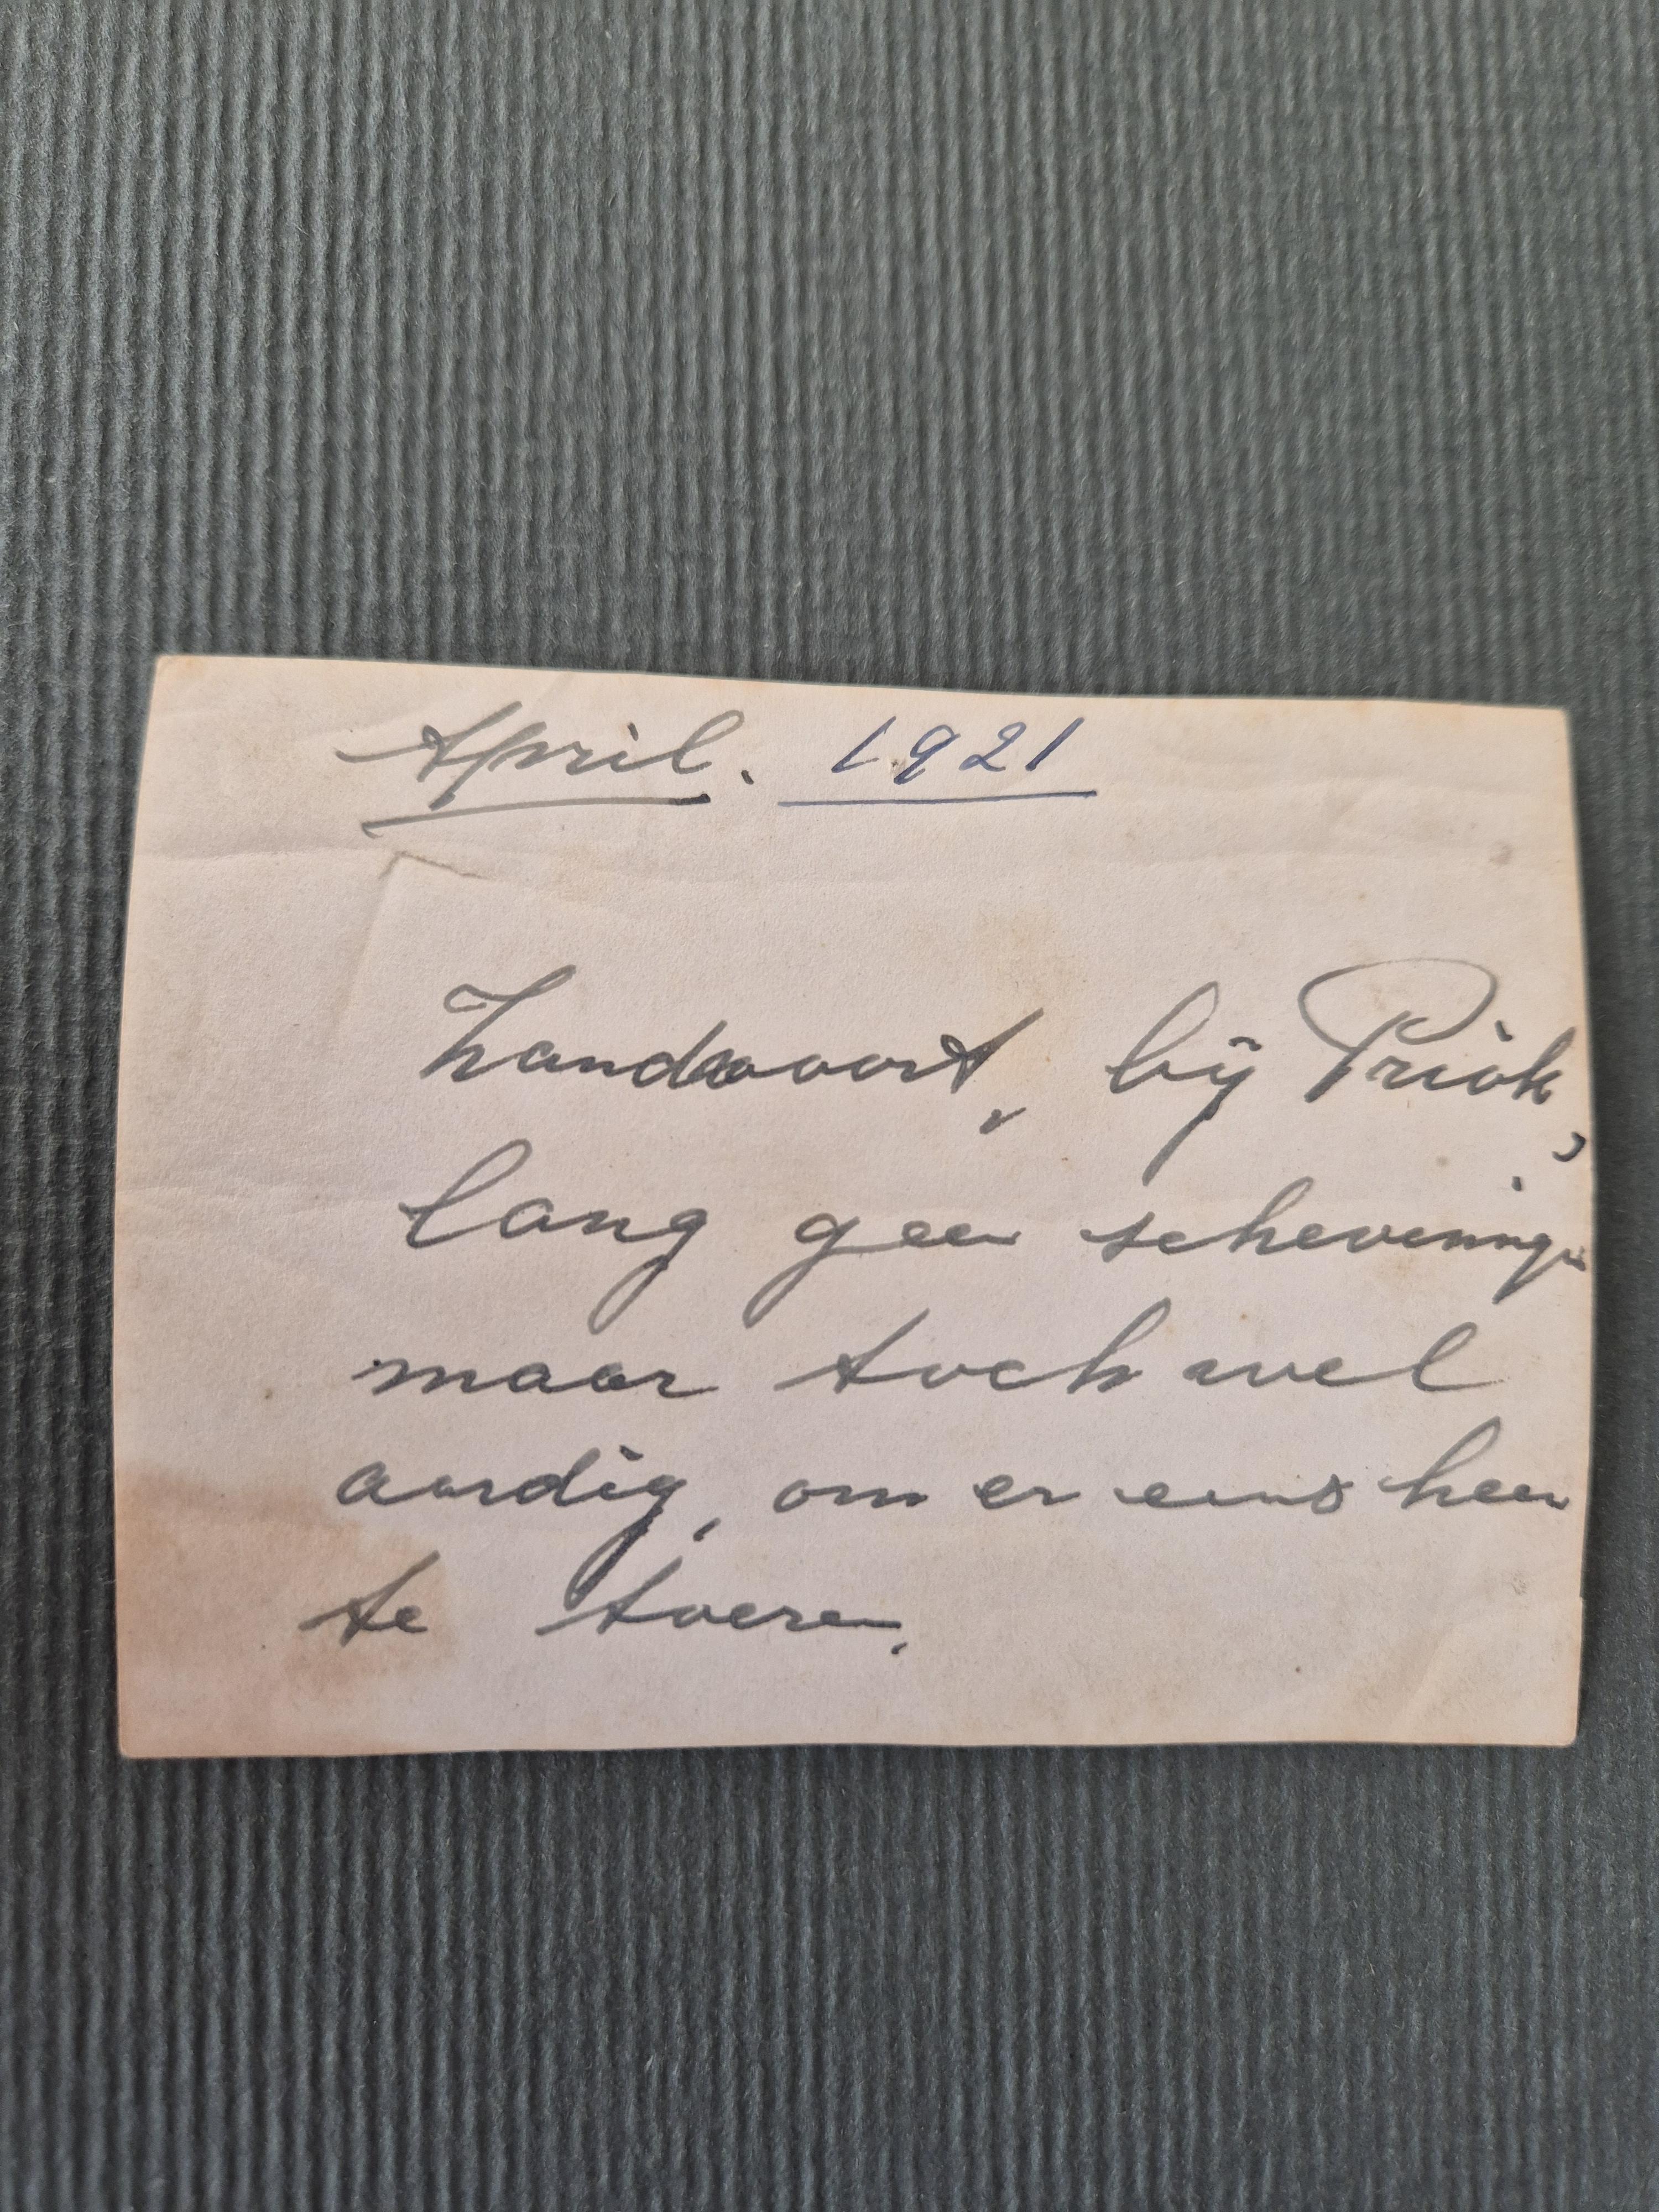 April. 1921
Zandvoort, bij Priok,
lang geen schevening
maar toch wel
aardig, om er eens heen
te toeren.